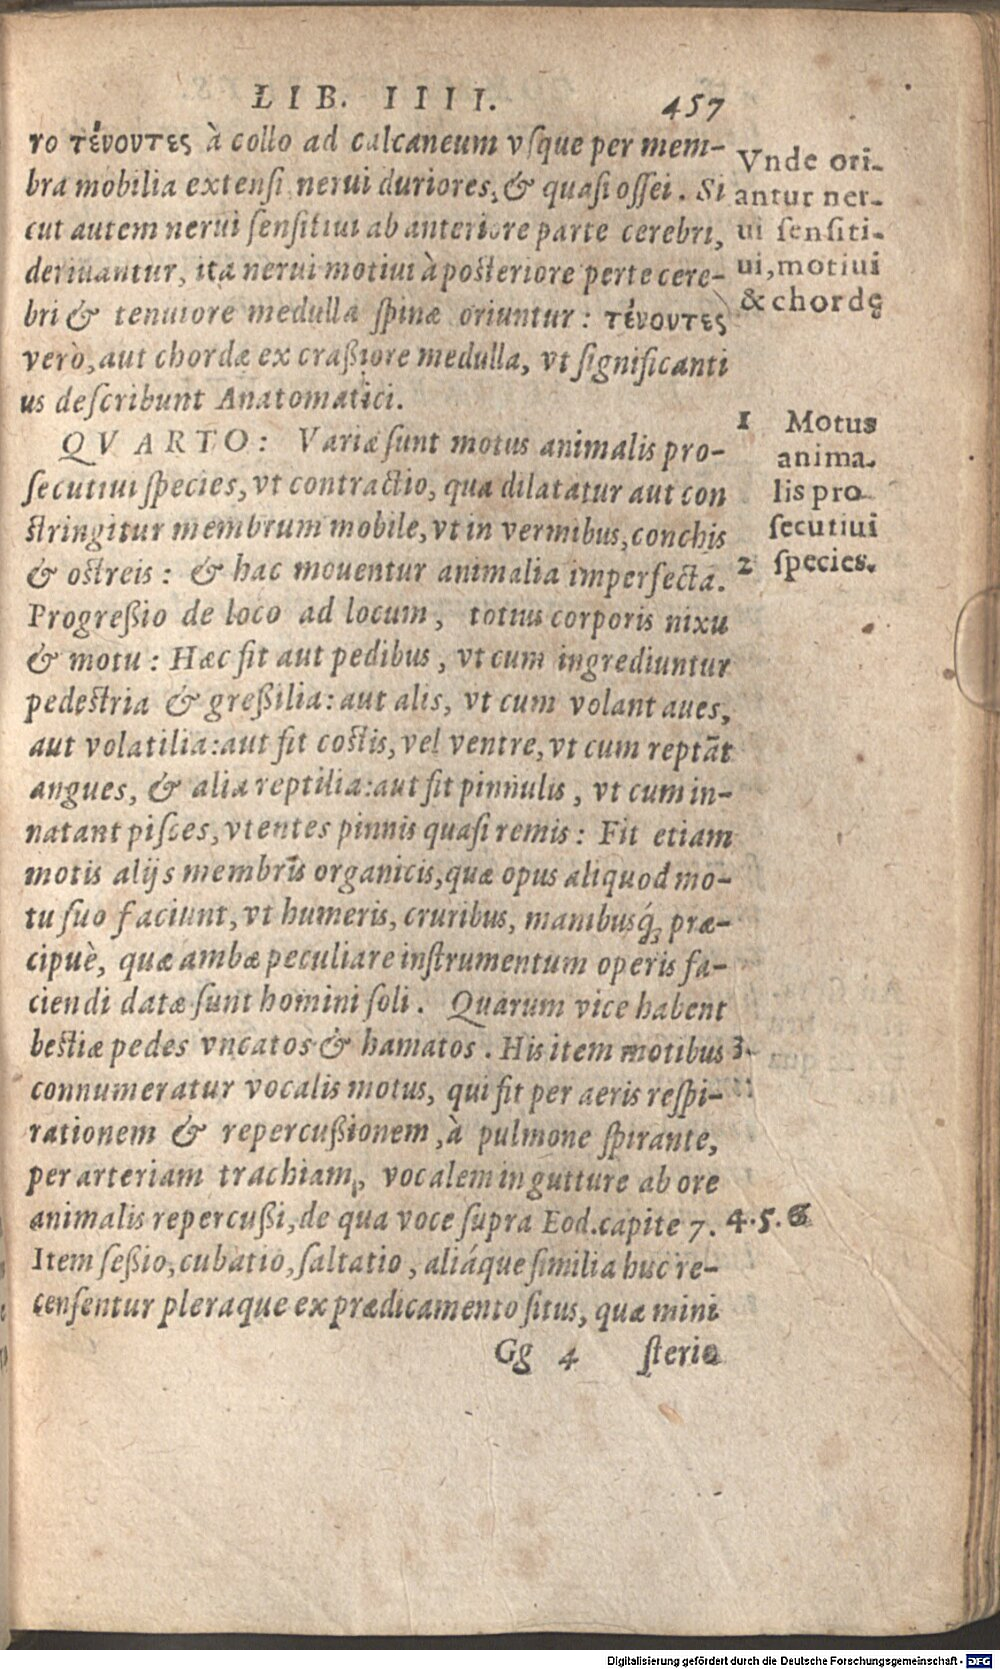 LIB. IIII.
457
ro τένοντες à collo ad calcaneum vsque per mem-
bra mobilia extensi nerui duriores, & quasi ossei. Si
cut autem nerui sensitiui ab anteriore parte cerebri,
deriuantur, ita nerui motiui à posteriore perte cere-
bri & tenuiore medulla spinæ oriuntur: τένοντες
verò, aut chordæ ex craßiore medulla, vt significanti
us describunt Anatomatici.
QVARTO: Variæ sunt motus animalis pro-
secutiui species, vt contractio, qua dilatatur aut con
stringitur membrum mobile, vt in vermibus, conchis
& ostreis: & hac mouentur animalia imperfecta.
Progreßio de loco ad locum, totius corporis nixu
& motu: Hæc fit aut pedibus, vt cum ingrediuntur
pedestria & greßilia: aut alis, vt cum volant aues,
aut volatilia: aut fit costis, vel ventre, vt cum reptāt
angues, & alia reptilia: aut fit pinnulis, vt cum in-
natant pisces, vtentes pinnis quasi remis: Fit etiam
motis alijs membris organicis, quæ opus aliquod mo-
tu suo faciunt, vt humeris, cruribus, manibusq́; præ-
cipuè, quæ ambæ peculiare instrumentum operis fa-
ciendi datæ sunt homini soli. Quarum vice habent
bestiæ pedes vncatos & hamatos. His item motibus
connumeratur vocalis motus, qui fit per aeris respi-
rationem & repercußionem, à pulmone spirante,
per arteriam trachiam, vocalem in gutture ab ore
animalis repercußi, de qua voce supra Eod. capite 7.
Item seßio, cubatio, saltatio, aliáque similia huc re-
censentur pleraque ex prædicamento situs, quæ mini
Gg 4 sterio
Vnde ori-
antur ner-
ui sensiti-
ui, motiui
& chordę
1 Motus
anima-
lis pro-
secutiui
2 species.
3.
4.5.6
Digitalisierung gefördert durch die Deutsche Forschungsgemeinschaft - DFG